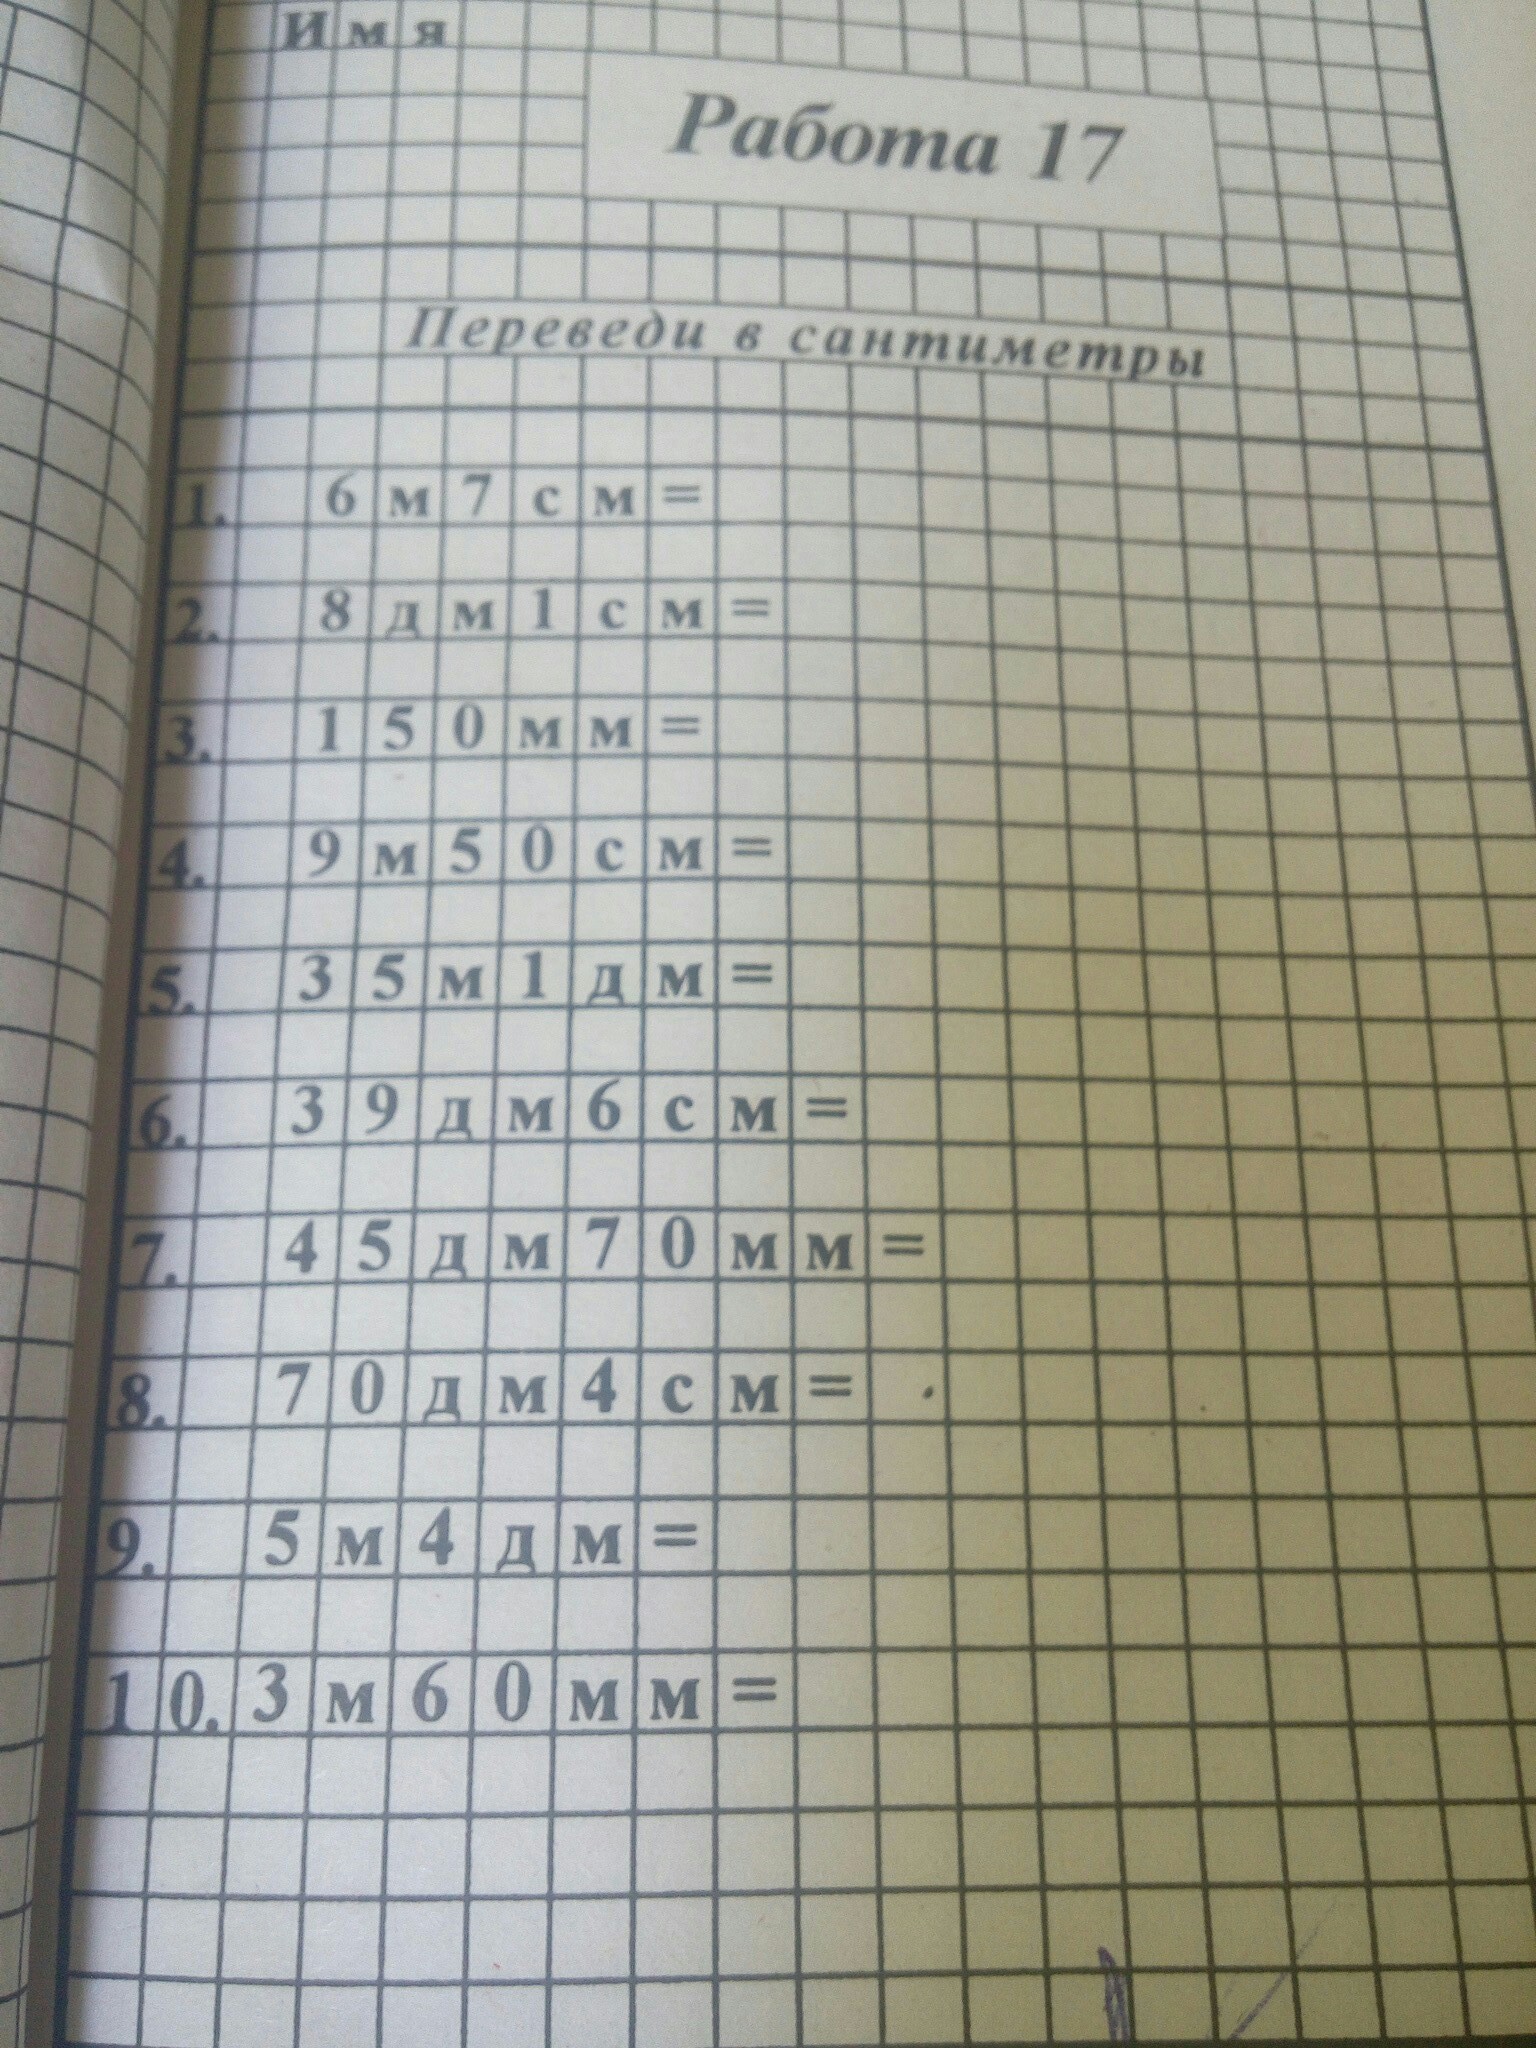 Имя
Работа 17
Переведи в сантиметры
1. 6м7см=
2. 8дм1см=
3. 150мм=
4. 9м50см=
5. 35м1дм=
6. 39дм6см=
7. 45дм70мм=
8. 70дм4см=
9. 5м4дм=
10. 3м60мм=